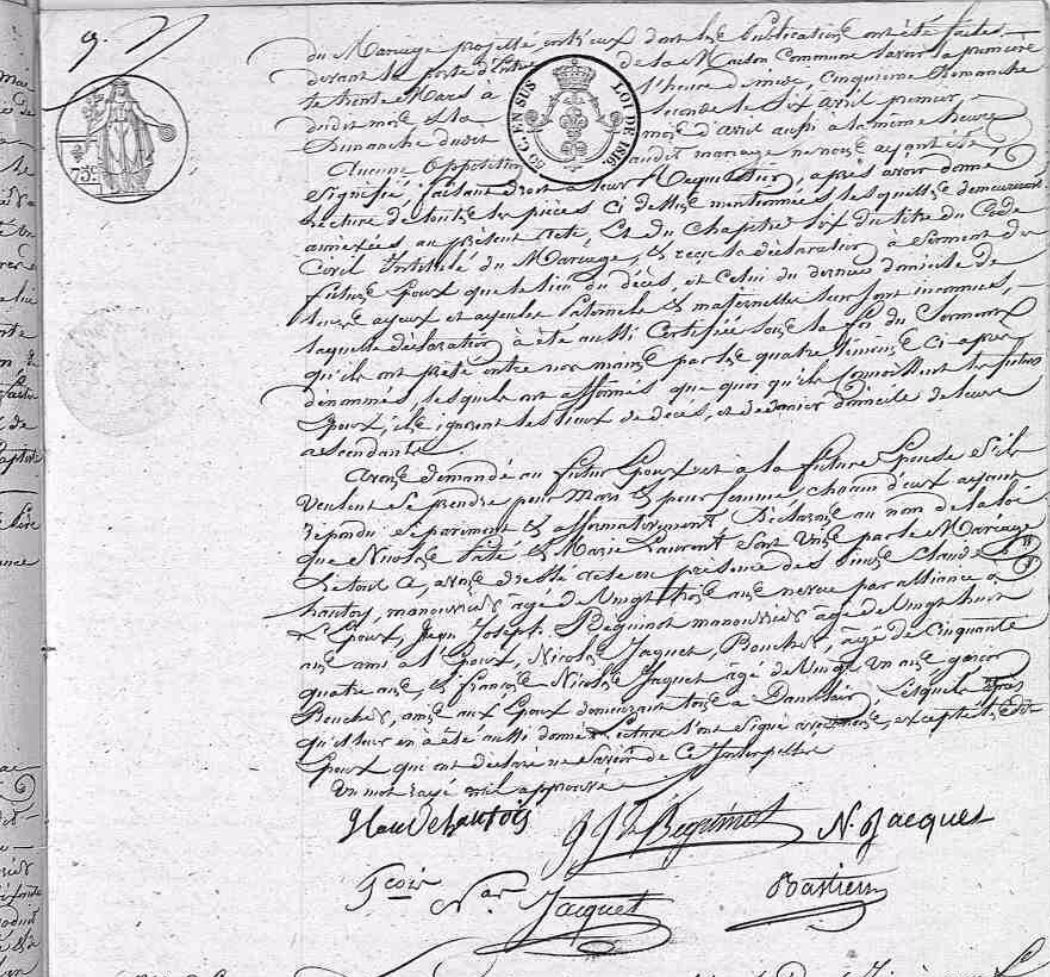 9.
du Mariage projetté entr'eux dont les Publications ont été faites
devant la porte d'Entrée de la Maison Commune savoir la premiere
le trente Mars à l'heure de midi, Cinquieme Dimanche
dudit mois & la seconde le Six avril premier
Dimanche dudit mois d'avril aussi à la même heure
Aucune Opposition audit mariage ne nous ayant été
signifié, faisant droit à leur Requisition, après avoir donné
Lecture de toutes les pièces ci dessus mentionnées lesquelles demeureront
annexées au présent acte, Et du Chapitre Six du titre du Code
Civil Intitulé du Mariage, & reçu la déclaration à Serment des
futurs Epoux que le lieu du décès, et Celui du dernier domicile de
leurs ayeux et ayeules Paternels & maternelles leur sont inconnus,
laquelle déclaration à été aussi Certifiée sous la foi du Serment
qu'ils ont prêté entre nos mains par les quatre témoins Ci après
dénommés, lesquels ont affirmés que quoi qu'ils Connoissent les futurs
Epoux, ils ignorent les lieux de décès, et de dernier domicile de leurs
ascendants.
Avons demandé au futur Epoux et à la future Epouse S'ils
veulent Se prendre pour Mari & pour femme, chacun d'eux ayant
répondu Séparément & affirmativement Déclarons au nom de la loi
que Nicolas & Marie Laurent Sont Unis par le Mariage
De tout Ce, avons dressé acte en présence des Sieurs Claude
hautoy, manouvrier âgé de Vingt trois ans neveu par alliance a
L'Epoux, Jean Joseph Beguinot manouvrier âgé de Vingt huit
ans ami a l'Epoux, Nicolas Jaquet, Boucher, âgé de Cinquante
quatre ans, & françois Nicolas Jaquet âgé de Vingt Un ans garçon
Boucher, amis aux Epoux demeurant tous à Damblain, Lesquels
qu'il leur en à été aussi donné Lecture l'ont Signé avec nous, excepté les dits
Epoux qui ont déclaré ne Savoir de Ce Interpellés
Un mot rayé nul approuvé
Claudehautois
J J h Beguinot
N. Jacquet
fcois Nas Jacquet
Bastien
50 C. EN SUS
LOI DE 1816.
75c